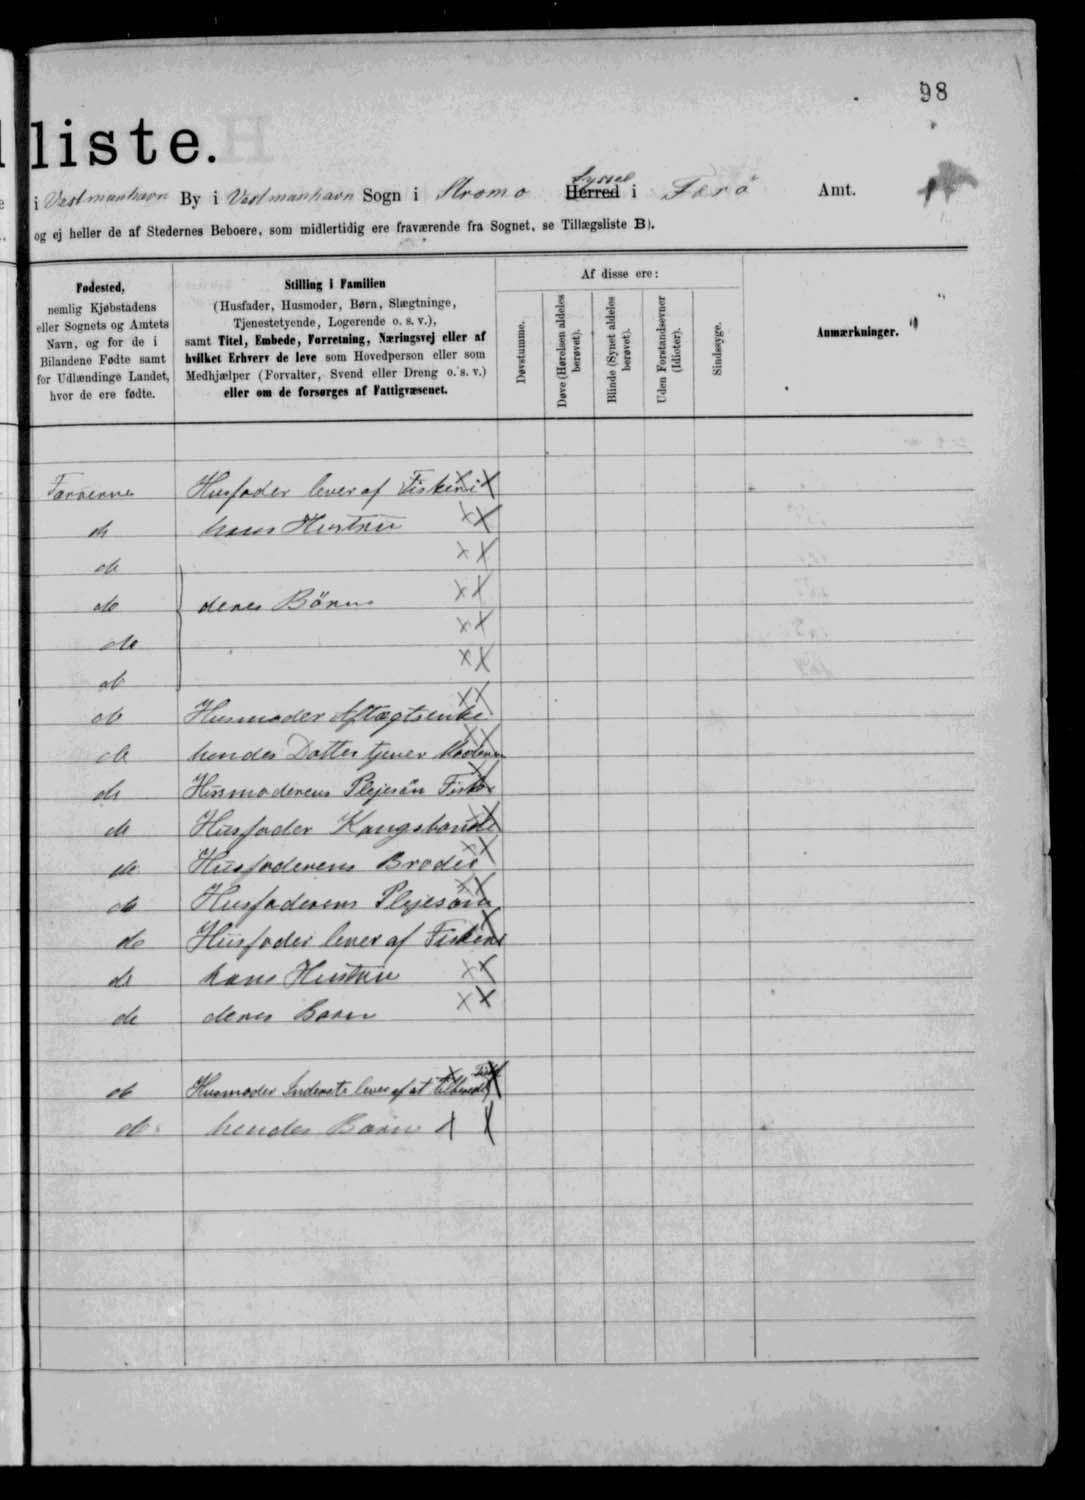 98
liste.
i Vestmanhavn By i Vestmanhavn Sogn i Strømø Herred Syssel i Færø Amt.
og ej heller de af Stedernes Beboere, som midlertidig ere fraværende fra Sognet, se Tillægsliste B).
Fødested,
nemlig Kjøbstadens
eller Sognets og Amtets
Navn, og for de i
Bilandene Fødte samt
for Udlændinge Landet,
hvor de ere fødte.
Stilling i Familien
(Husfader, Husmoder, Børn, Slægtninge,
Tjenestetyende, Logerende o. s. v.),
samt Titel, Embede, Forretning, Næringsvej eller af
hvilket Erhverv de leve som Hovedperson eller som
Medhjælper (Forvalter, Svend eller Dreng o. s. v.)
eller om de forsørges af Fattigvæsenet.
Af disse ere:
Døvstumme.
Døve (Hørelsen aldeles
berøvet).
Blinde (Synet aldeles
berøvet).
Uden Forstandsevner
(Idioter).
Sindssyge.
Anmærkninger.
Færøerne Husfader lever af Fiskeri
do hans Hustru
do
do deres Børn
do
do
do Husmoder Aftægtsenke
do hendes Datter tjener Moderen
do Husmoderens Plejesøn Fisker
do Husfader Kongsbonde
do Husfaderens Broder
do Husfaderens Plejesøn
do Husfader lever af Fiskeri
do hans Hustru
do deres Barn
do Husmoder Inderste lever af at
do hendes Barn